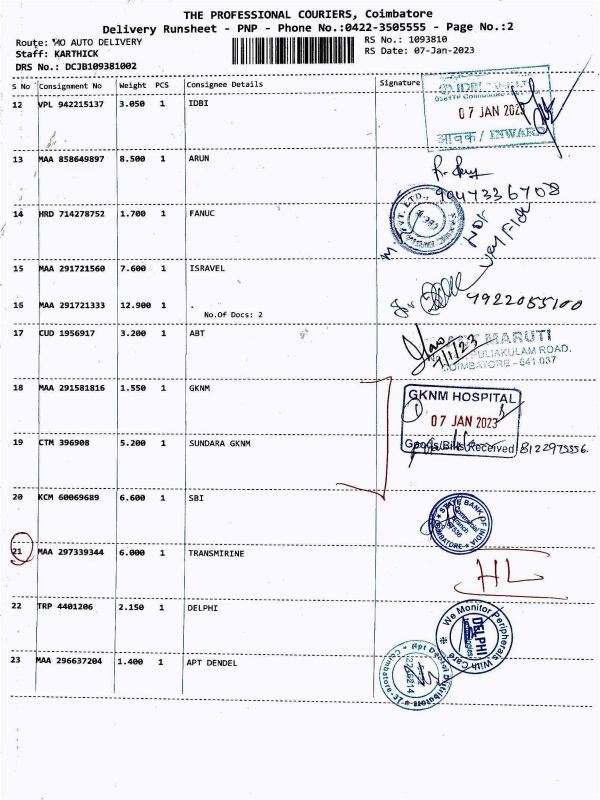 THE PROFESSIONAL COURIERS, Coimbatore
Delivery Runsheet - PNP - Phone No.:0422-3505555 - Page No.:2
Route: MO AUTO DELIVERY
RS No.: 1093810
Staff: KARTHICK
RS Date: 07-Jan-2023
DRS No.: DCJB109381002
S No Consignment No Weight PCS Consignee Details Signature
12 VPL 942215137 3.050 1 IDBI
07 JAN 2023
आवक / INWARD
13 MAA 858649897 8.500 1 ARUN
9047336708
14 HRD 714278752 1.700 1 FANUC
PVT. LTD.
15 MAA 291721560 7.600 1 ISRAVEL
16 MAA 291721333 12.900 1 .
No.Of Docs: 2
9922055100
17 CUD 1956917 3.200 1 ABT
MARUTI
PULIAKULAM ROAD,
COIMBATORE - 641 037
18 MAA 291581816 1.550 1 GKNM
GKNM HOSPITAL
07 JAN 2023
Goods/Bills Received
19 CTM 396908 5.200 1 SUNDARA GKNM
8122975556.
20 KCM 60069689 6.600 1 SBI
STATE BANK OF INDIA
COIMBATORE
21 MAA 297339344 6.000 1 TRANSMIRINE
HL
22 TRP 4401206 2.150 1 DELPHI
We Monitor Peripherals With Care
DELPHI
23 MAA 296637204 1.400 1 APT DENDEL
Apt Dental Distributors
Coimbatore-37